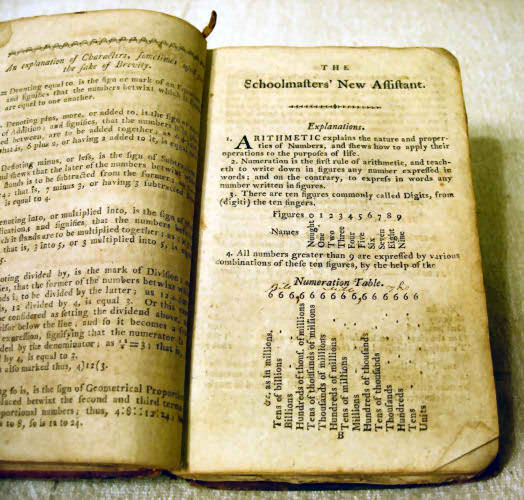 An explanation of Characters, sometimes used for
the sake of Brevity.
= Denoting equal to, is the sign or mark of an Equa
and signifies that the numbers betwixt which it
are equal to one another.
Denoting plus, more, or added to, is the sign of
of Addition; and signifies, that the numbers
between, are to be added together; as
is, 6 plus 2, or having 2 added to it, is equal
Denoting minus, or less, is the sign of Subtra
shews that the later of the numbers betwe
stands is to be subtracted from the former
that is, 7 minus 3, or having 3 subtracted
is equal to 4.
Denoting into, or multiplied into, is the sign of
plication, and signifies, that the numbers betw
which it stands are to be multiplied together; as
that is, 3 into 5, or 3 multiplied into 5, is equal
Denoting divided by, is the mark of Division;
ies, that the former of the numbers betwixt wh
stands is to be divided by the latter; as 12÷
is, 12 divided by 4 is equal 3. Or this ca
be considered as setting the dividend above,
divisor below the line; and so it becomes a
expression, signifying that the numerator is
divided by the denominator; as =3; that is,
by 4, is equal to 3.
is also marked thus, 4)12(3.
so is, is the sign of Geometrical Proportion
placed betwixt the second and third terms
proportional numbers; thus, 4:8::12:24;
to 8, so is 12 to 24.
THE
Schoolmasters' New Assistant.
Explanations.
1. ARITHMETIC explains the nature and proper-
ties of Numbers, and shews how to apply their
operations to the purposes of life.
2. Numeration is the first rule of arithmetic, and teach-
eth to write down in figures any number expressed in
words; and on the contrary, to express in words any
number written in figures.
3. There are ten figures commonly called Digits, from
(digiti) the ten fingers.
Figures 0 1 2 3 4 5 6 7 8 9
Names Nought One Two Three Four Five Six Seven Eight Nine
4. All numbers greater than 9 are expressed by various
combinations of these ten figures, by the help of the
Numeration Table.
6 6 6,6 6 6 6 6 6,6 6 6 6 6 6
&c. as in millions.
Tens of billions
Billions
Hundreds of thous. of millions
Tens of thousands of millions
Thousands of millions
Hundreds of millions
Tens of millions
Millions
Hundreds of thousands
Tens of thousands
Thousands
Hundreds
Tens
Units